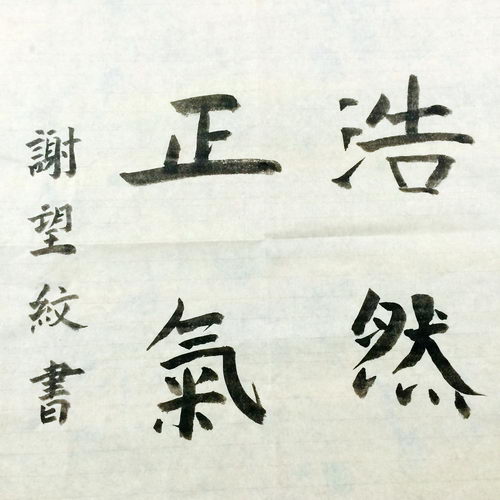 浩然
正氣
謝望紋書